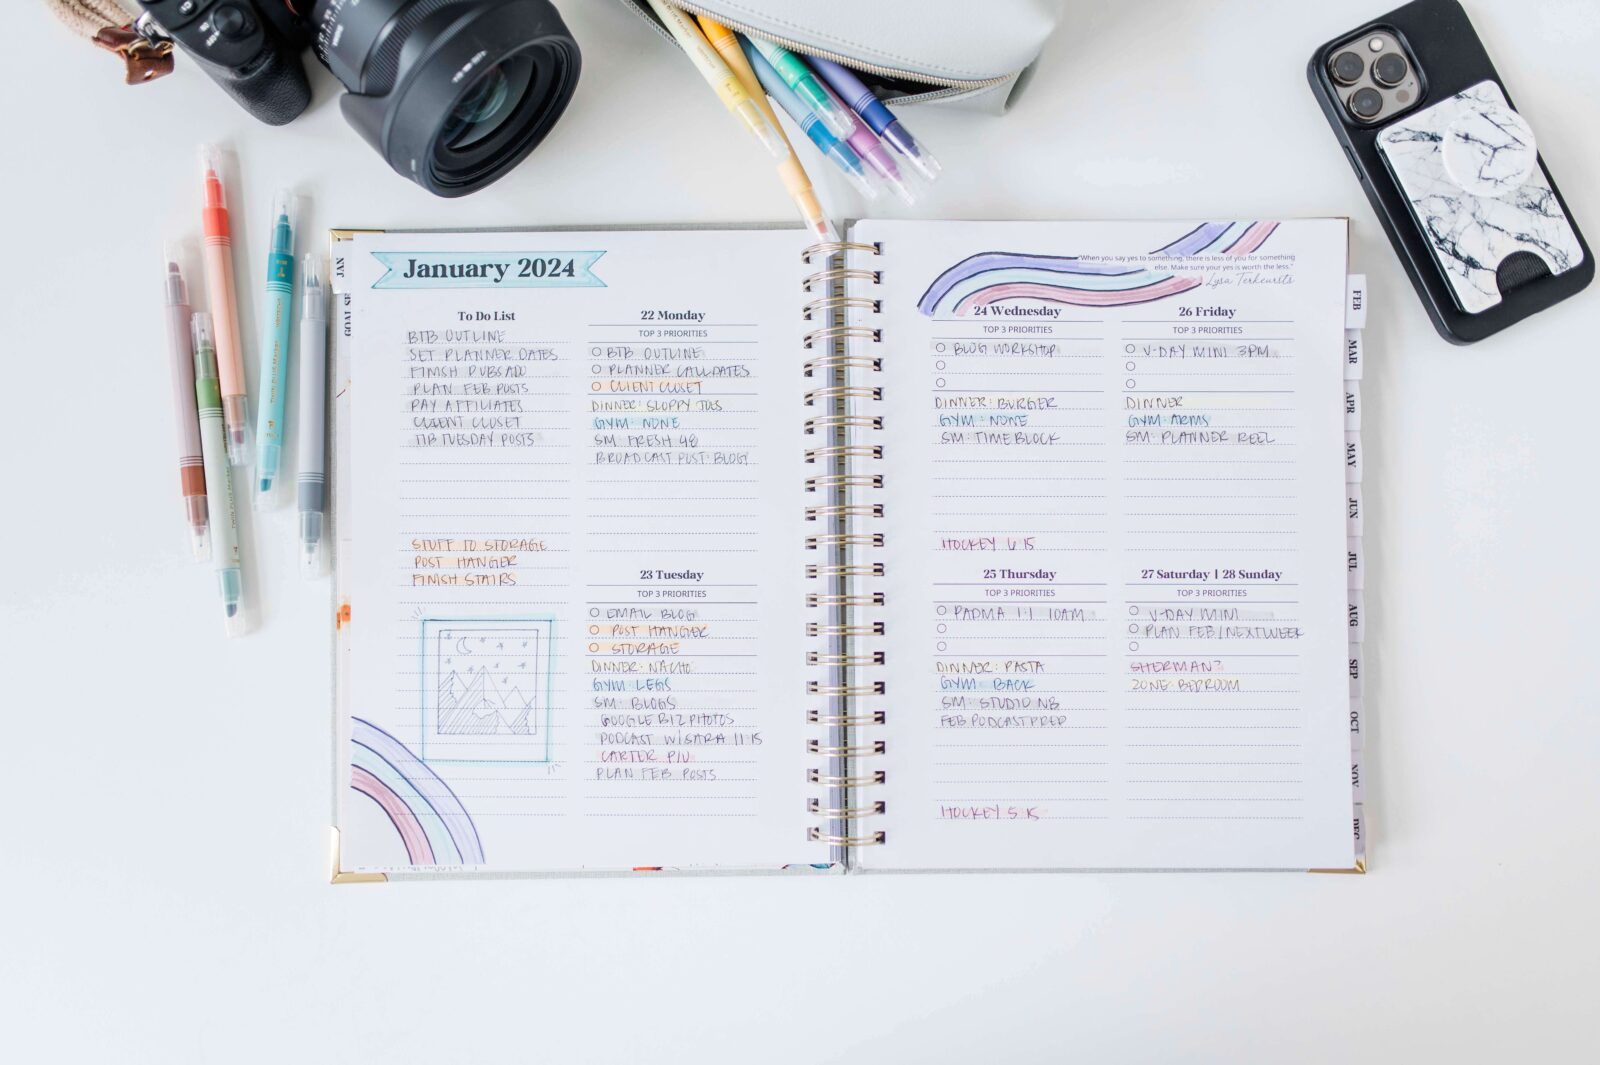 January 2024
JAN
To Do List
BTB OUTLINE
SET PLANNER DATES
FINISH DUBSADO
PLAN FEB POSTS
PAY AFFILIATES
CLIENT CLOSET
TIB TUESDAY POSTS
STUFF TO STORAGE
POST HANGER
FINISH STAIRS
22 Monday
TOP 3 PRIORITIES
BTB OUTLINE
PLANNER CALL DATES
CLIENT CLOSET
DINNER: SLOPPY JOES
GYM: NONE
SM: FRESH 48
BROADCAST POST: BLOG
23 Tuesday
TOP 3 PRIORITIES
EMAIL BLOG
POST HANGER
STORAGE
DINNER: NACHO
GYM: LEGS
SM: BLOGS
GOOGLE BIZ PHOTOS
PODCAST W/SARA 11:15
CARTER P/U
PLAN FEB POSTS
"When you say yes to something, there is less of you for something
else. Make sure your yes is worth the less."
Lysa Terkeursts
24 Wednesday
TOP 3 PRIORITIES
BLOG WORKSHOP
DINNER: BURGER
GYM: NONE
SM: TIME BLOCK
HOCKEY 6:15
25 Thursday
TOP 3 PRIORITIES
PADMA 1:1 10AM
DINNER: PASTA
GYM: BACK
SM: STUDIO NB
FEB PODCAST PREP
HOCKEY 5:15
26 Friday
TOP 3 PRIORITIES
V-DAY MINI 3PM
DINNER
GYM: ARMS
SM: PLANNER REEL
27 Saturday | 28 Sunday
TOP 3 PRIORITIES
V-DAY MINI
PLAN FEB/NEXT WEEK
SHERMAN?
ZONE: BEDROOM
FEB
MAR
APR
MAY
JUN
JUL
AUG
SEP
OCT
NOV
DEC